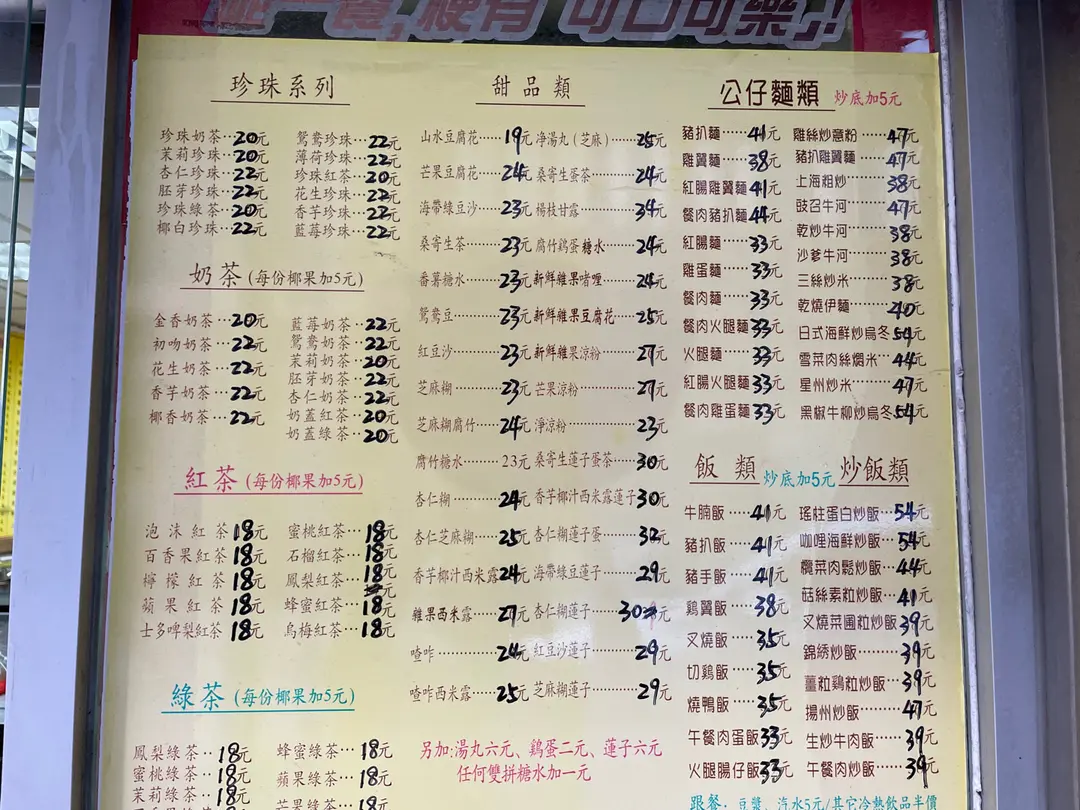 一餐,梗有"可口可樂"!
珍珠系列
珍珠奶茶···20元 鴛鴦珍珠···22元
茉莉珍珠···20元 薄荷珍珠···22元
杏仁珍珠···22元 珍珠紅茶···20元
胚芽珍珠···22元 花生珍珠···22元
珍珠綠茶···20元 香芋珍珠···22元
椰白珍珠···22元 藍莓珍珠···22元
奶茶(每份椰果加5元)
金香奶茶···20元
初吻奶茶···22元
花生奶茶···22元
香芋奶茶···22元
椰香奶茶···22元
藍莓奶茶···22元
鴛鴦奶茶···22元
茉莉奶茶···20元
胚芽奶茶···22元
杏仁奶茶···22元
奶蓋紅茶···20元
奶蓋綠茶···20元
紅茶(每份椰果加5元)
泡沫紅茶18元 蜜桃紅茶···18元
百香果紅茶18元 石榴紅茶···18元
檸檬紅茶18元 鳳梨紅茶···18元
蘋果紅茶18元 蜂蜜紅茶···18元
士多啤梨紅茶18元 烏梅紅茶···18元
綠茶(每份椰果加5元)
鳳梨綠茶··18元 蜂蜜綠茶···18元
蜜桃綠茶··18元 蘋果綠茶···18元
茉莉綠茶··18元 芒果綠茶···18元
甜品類
山水豆腐花······19元 净湯丸(芝麻)······25元
芒果豆腐花······24元 桑寄生蛋茶······24元
海帶綠豆沙······23元 楊枝甘露······34元
桑寄生茶······23元 腐竹鷄蛋糖水······24元
番薯糖水······23元 新鮮雜果啫喱······24元
鴛鴦豆······23元 新鮮雜果豆腐花······25元
紅豆沙······23元 新鮮雜果涼粉······27元
芝麻糊······23元 芒果涼粉······27元
芝麻糊腐竹······24元 淨涼粉······23元
腐竹糖水······23元 桑寄生蓮子蛋茶······30元
杏仁糊······24元 香芋椰汁西米露蓮子30元
杏仁芝麻糊······25元 杏仁糊蓮子蛋······32元
香芋椰汁西米露24元 海帶綠豆蓮子······29元
雜果西米露······27元 杏仁糊蓮子······30元
喳咋······24元 紅豆沙蓮子······29元
喳咋西米露······25元 芝麻糊蓮子······29元
另加:湯丸六元、鷄蛋二元、蓮子六元
任何雙拼糖水加一元
公仔麵類 炒底加5元
豬扒麵······41元
雞翼麵······38元
紅腸雞翼麵41元
餐肉豬扒麵44元
紅腸麵······33元
雞蛋麵······33元
餐肉麵······33元
餐肉火腿麵33元
火腿麵······33元
紅腸火腿麵33元
餐肉雞蛋麵33元
雞絲炒意粉······47元
豬扒雞翼麵······47元
上海粗炒······38元
豉召牛河······47元
乾炒牛河······38元
沙爹牛河······38元
三絲炒米······38元
乾燒伊麵······40元
日式海鮮炒烏冬54元
雪菜肉絲燜米···44元
星州炒米······47元
黑椒牛柳炒烏冬54元
飯類 炒底加5元 炒飯類
牛腩飯······41元 瑤柱蛋白炒飯···54元
豬扒飯······41元 咖哩海鮮炒飯···54元
豬手飯······41元 欖菜肉鬆炒飯···44元
鷄翼飯······38元 菇絲素粒炒飯···41元
叉燒飯······35元 叉燒菜圃粒炒飯39元
切鷄飯······35元 錦綉炒飯······39元
燒鴨飯······35元 薑粒鷄粒炒飯···39元
午餐肉蛋飯33元 揚州炒飯······47元
火腿腸仔飯33元 生炒牛肉飯······39元
午餐肉炒飯······39元
跟餐:豆漿、汽水5元/其它冷熱飲品半價